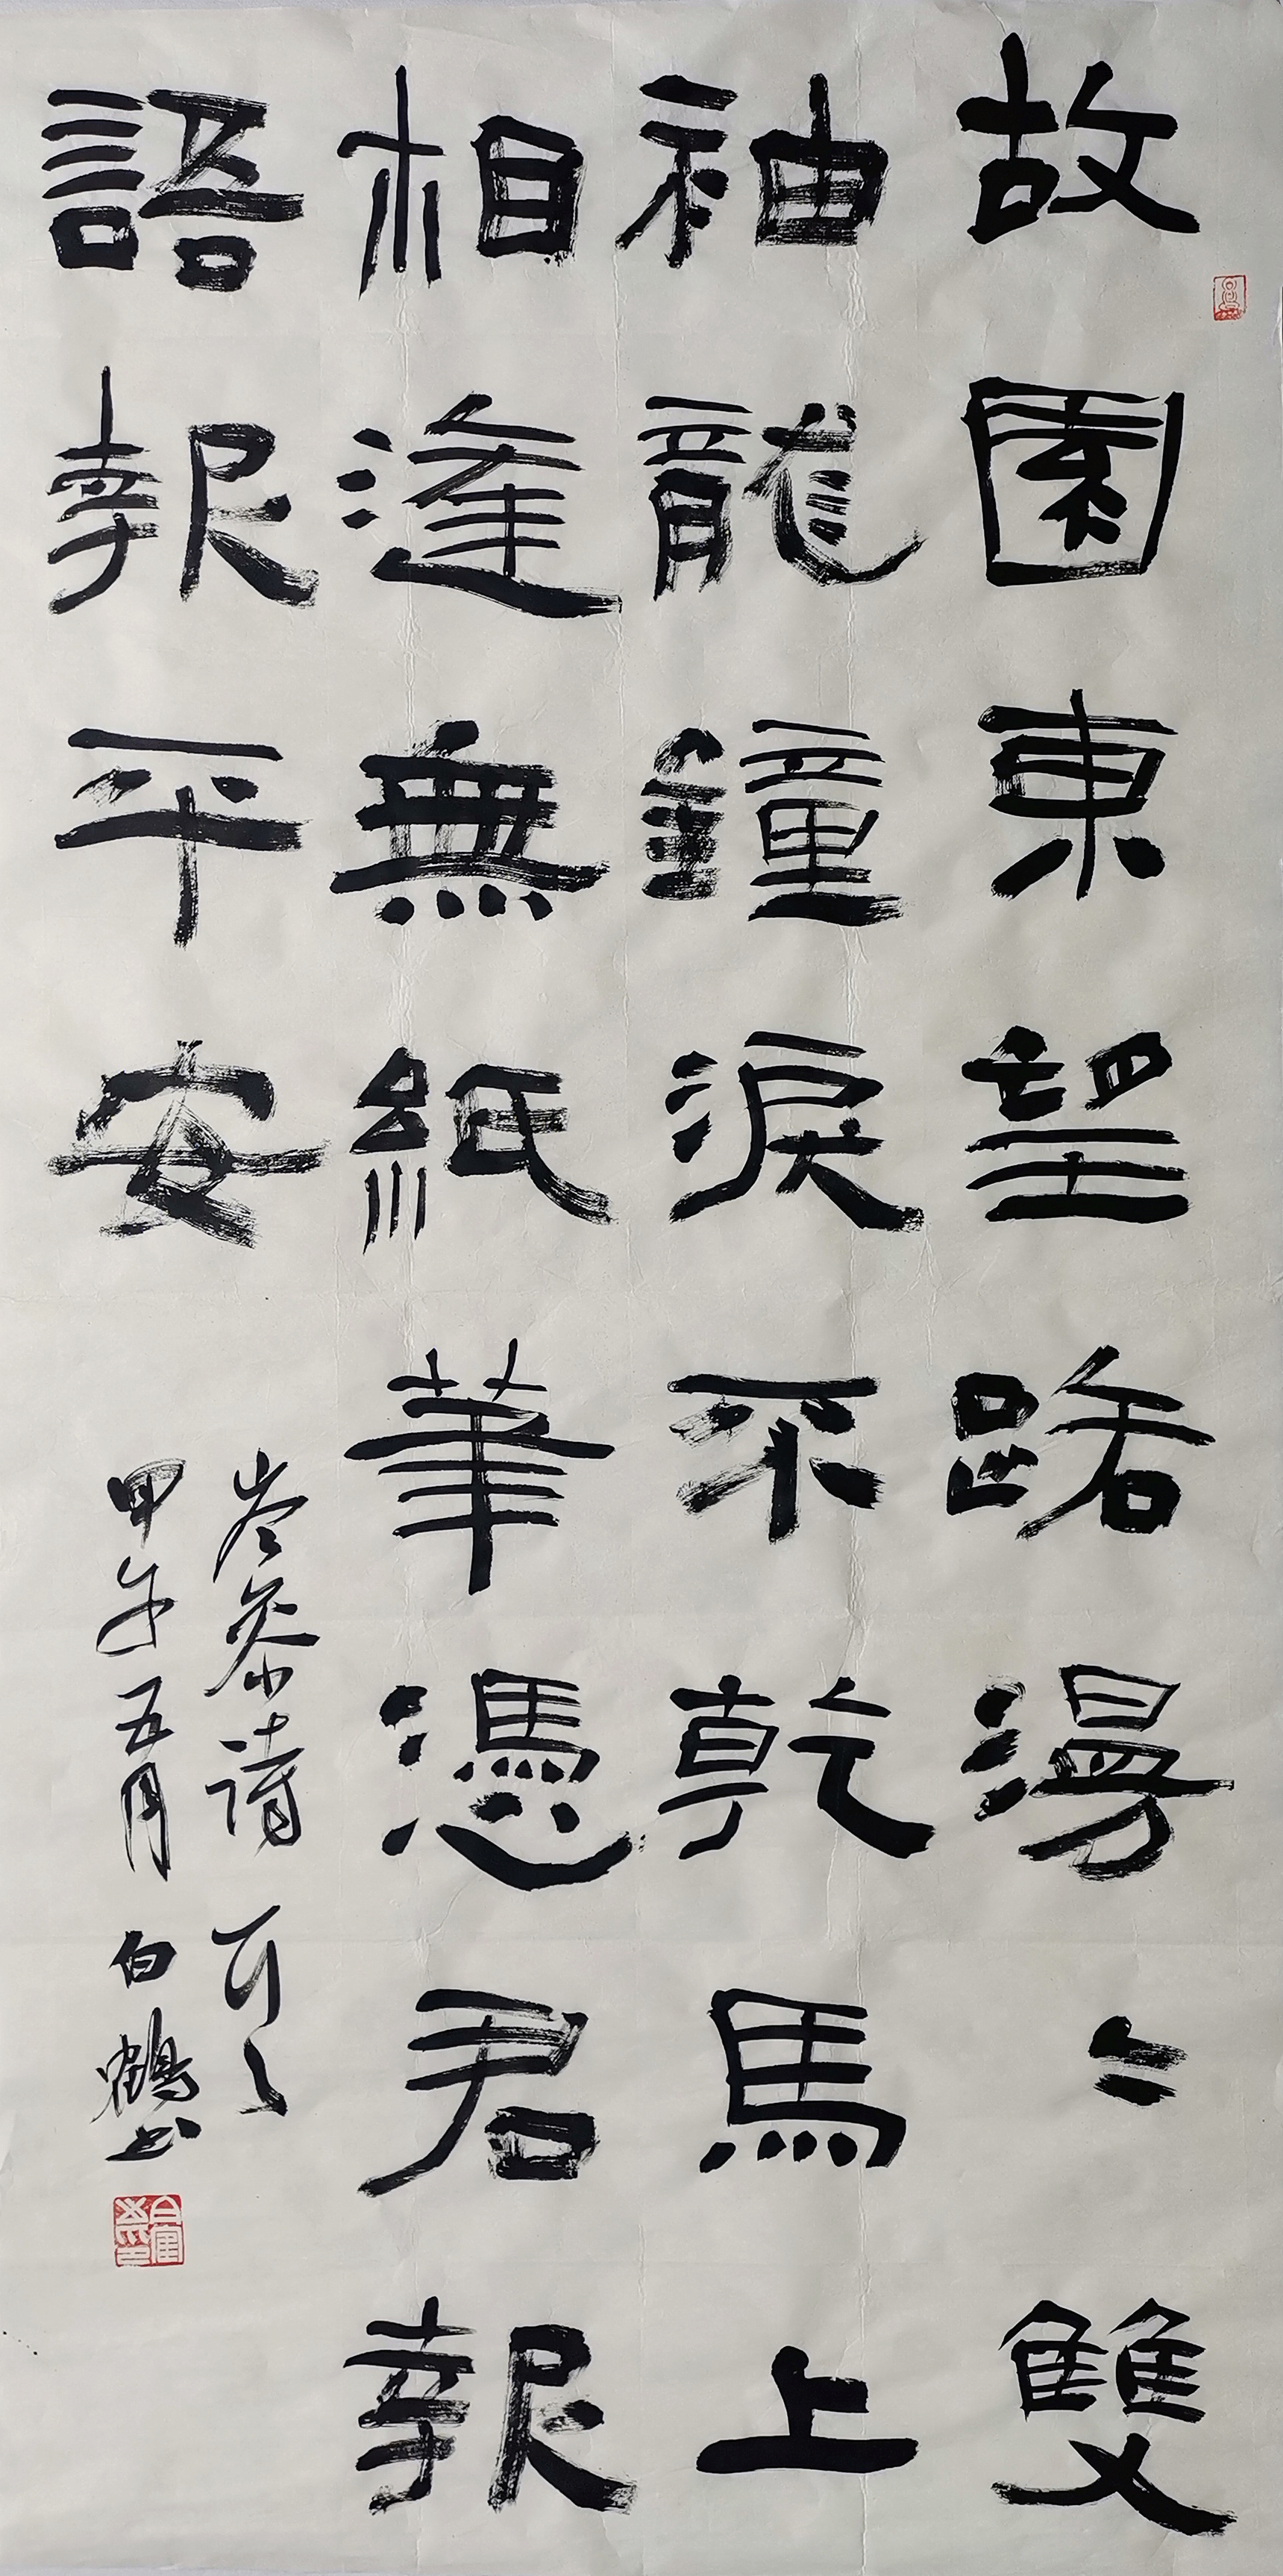 故園東望路漫〻雙
袖龍鐘淚不乾馬上
相逢無紙筆憑君報
語報平安
岑參詩
甲午五月 白鶴書